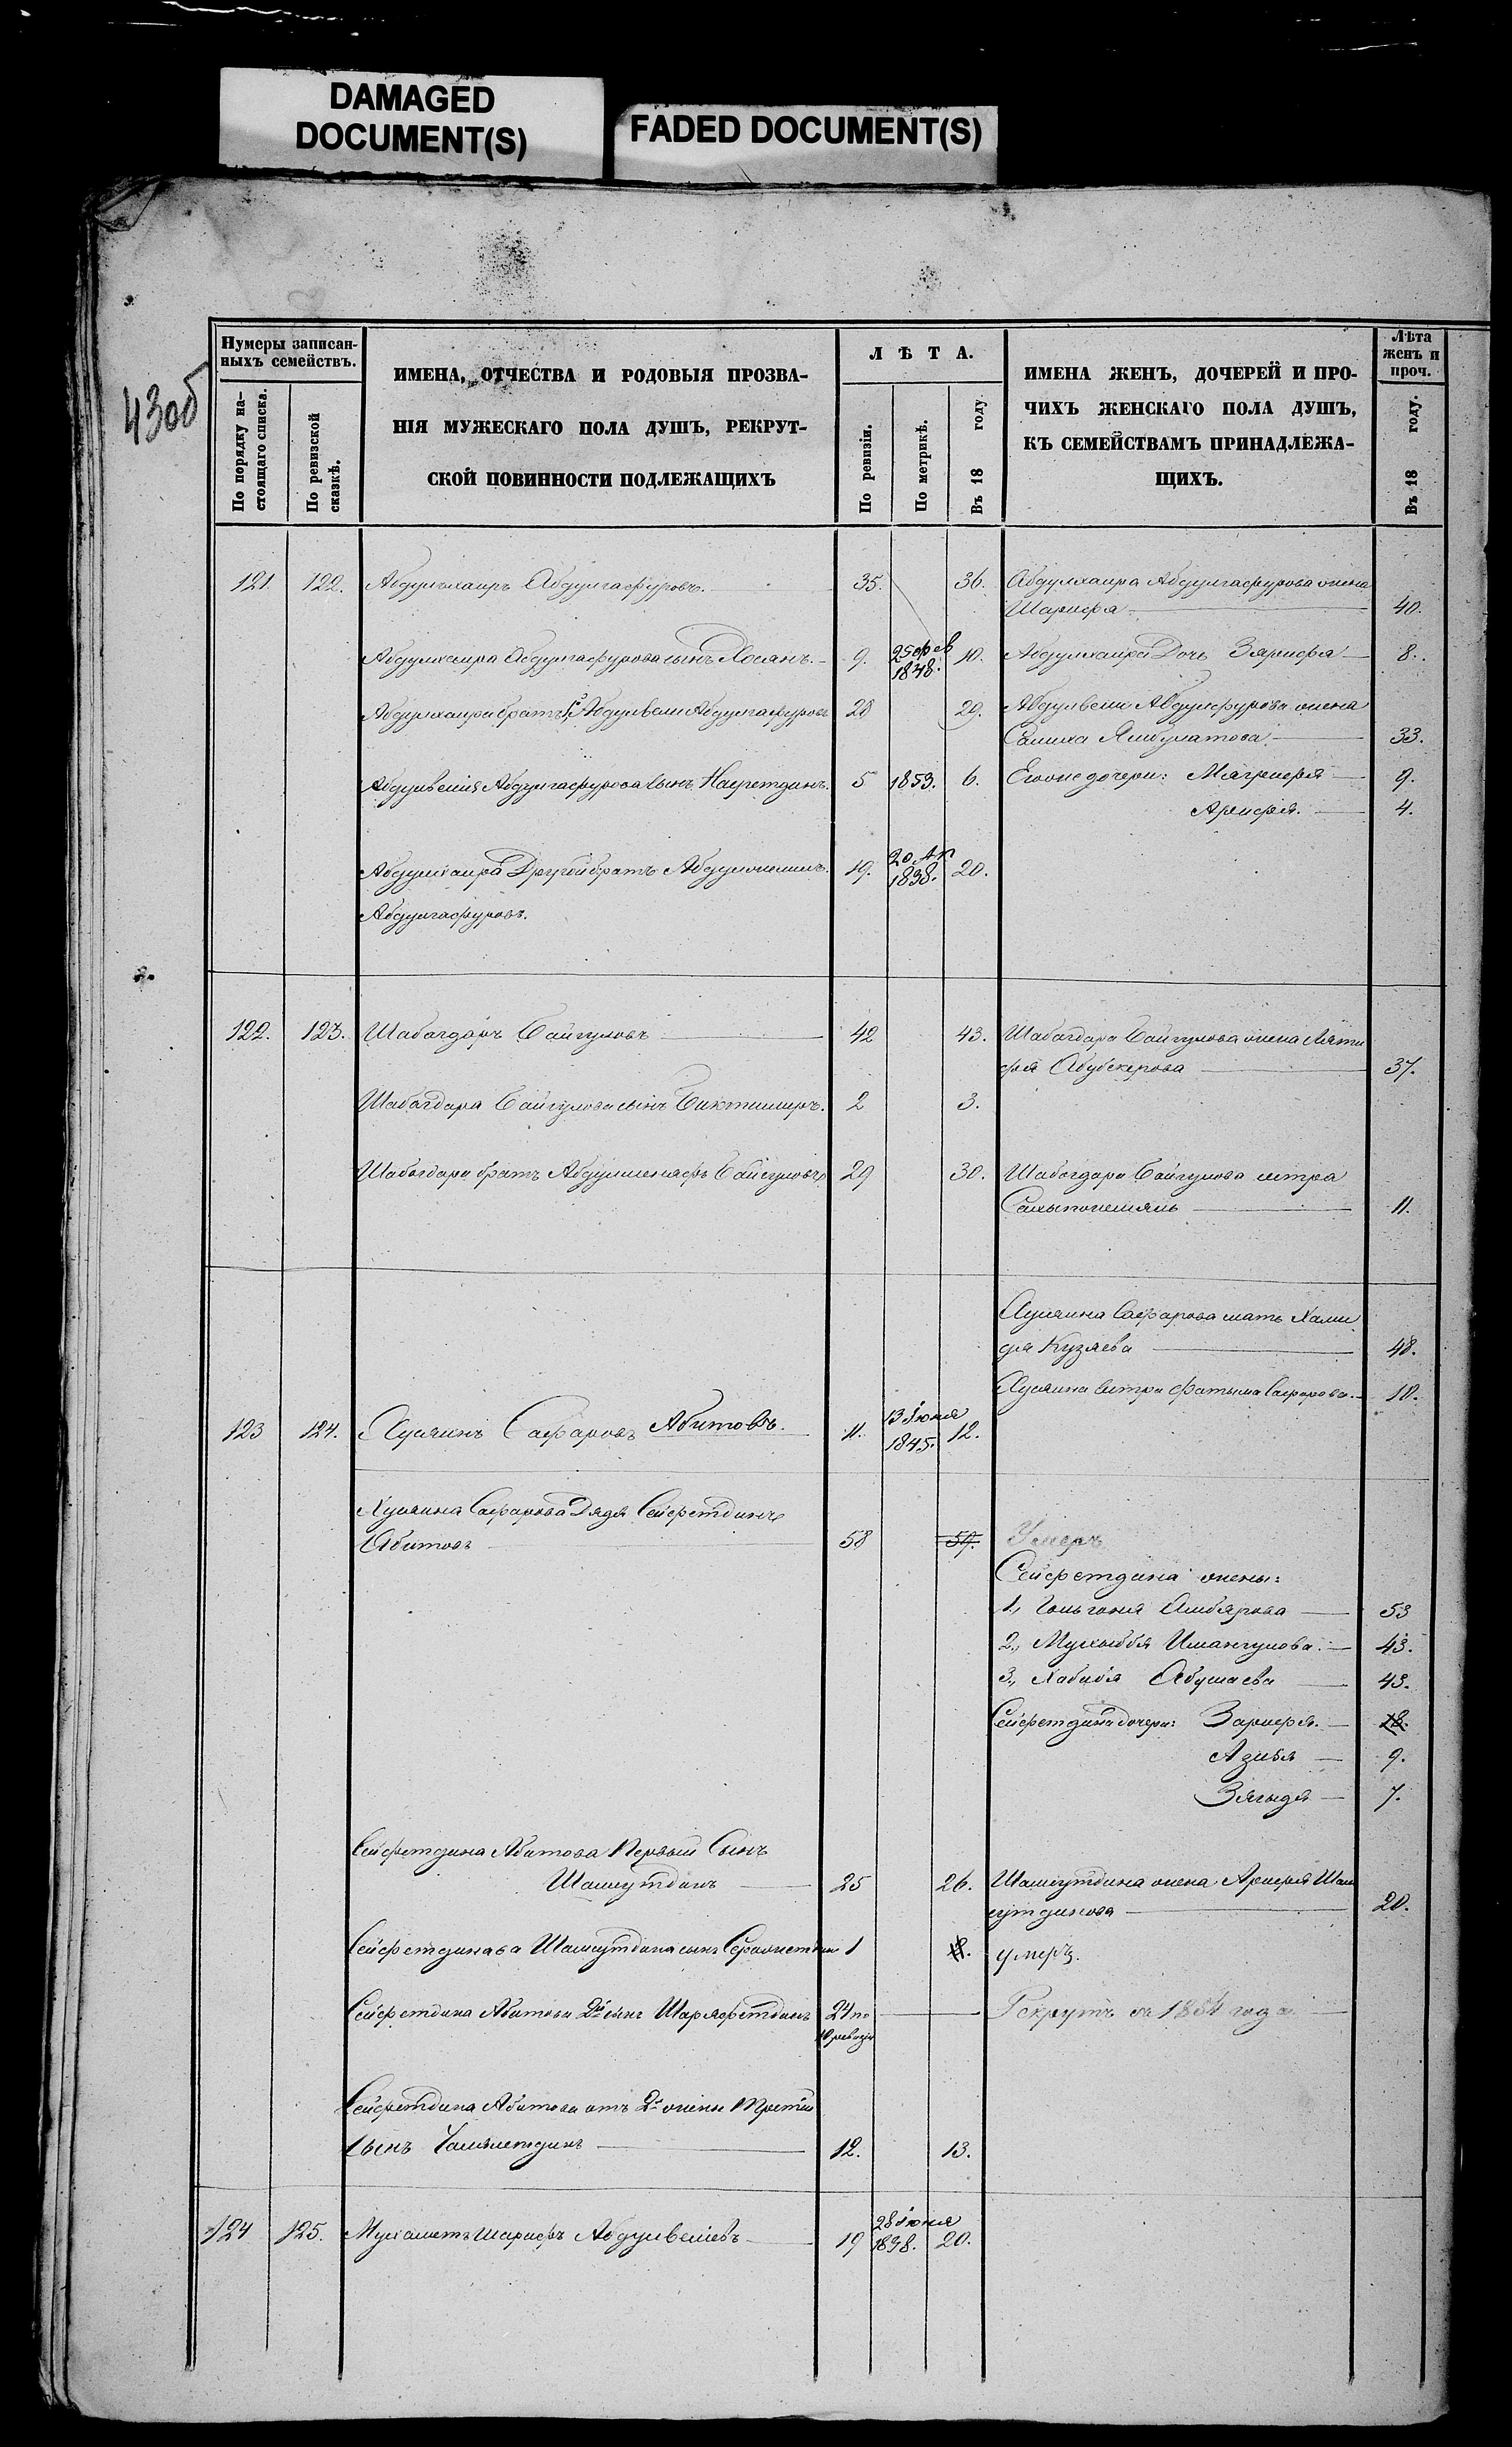 DAMAGED
DOCUMENT(S)
FADED DOCUMENT(S)
43об
Нумеры записан-
ныхъ семействъ.
По порядку на-
стоящаго списка.
По ревизской
сказкѣ.
ИМЕНА, ОТЧЕСТВА И РОДОВЫЯ ПРОЗВА-
НІЯ МУЖЕСКАГО ПОЛА ДУШЪ, РЕКРУТ-
СКОЙ ПОВИННОСТИ ПОДЛЕЖАЩИХЪ
ЛѢТА.
По ревизіи.
По метрикѣ.
Въ 18 году.
ИМЕНА ЖЕНЪ, ДОЧЕРЕЙ И ПРО-
ЧИХЪ ЖЕНСКАГО ПОЛА ДУШЪ,
КЪ СЕМЕЙСТВАМЪ ПРИНАДЛЕЖА-
ЩИХЪ.
Лѣта
женъ и
проч.
Въ 18 году.
121. 122. Абдулхаиръ Абдулгафуровъ. 35. 36. Абдулхаира Абдулгафурова жена
Шарифа 40.
Абдулхаира Абдулгафурова сынъ Хосянъ. 9. 25 фев 1848. 10. Абдулхаира Дочь Зярифа 8.
Абдулхаира братъ Абдулвели Абдулгафуровъ 28 29. Абдулвели Абдулфурова жена
Салиха Ямбулатова. 33.
Абдулвелія Абдулгафурова сынъ Насретдинъ. 5 1853. 6. Его же дочери: Магрифя 9.
Арифя. 4.
Абдулхаира Другой братъ 19. 20 Ап 1838. 20.
Абдулгафуровъ.
122. 123. Шабагдаръ Байгуловъ 42 43. Шабагдара Байгулова жена Ляти
фя Абубекерова 37.
Шабагдара Байгулова сынъ Биктимиръ. 2 3.
Шабагдара братъ Байгуловъ 29 30. Шабагдара Байгулова сестра
11.
Хусяина Сафарова мать Хами
дя Кузяева 48.
Хусяина сестра Фатыма Сафарова. 18.
123 124. Хусяинъ Сафаровъ Абитовъ. 11. 13 Іюня 1845. 12.
Хусяина Сафарова Дядя Сейфетдинъ
Абитовъ 58 59. Умеръ
Сейфетдина жены:
1., 53
2., Имангулова. 43.
3., Хабибя Абушаева 43.
Сейфетдина дочери: Зарифя. 18.
Азибя 9.
Зягыдя 7.
Сейфетдина Абитова Первый Сынъ
Шамсутдинъ 25 26. Шамсутдина жена Арифя Шам
сутдинова 20.
Сейфетдинава Шамсутдина сынъ 1 умеръ.
Сейфетдина Абитова 2й сынъ Шаряфетдинъ 24 по
10 ревизіи Рекрутъ съ 1854 года.
Сейфетдина Абитова отъ 2й жены третій
сынъ 12. 13.
124 125. Мухаметъ Шарифъ Абдулвеліевъ 19 28 Іюня 1838. 20.